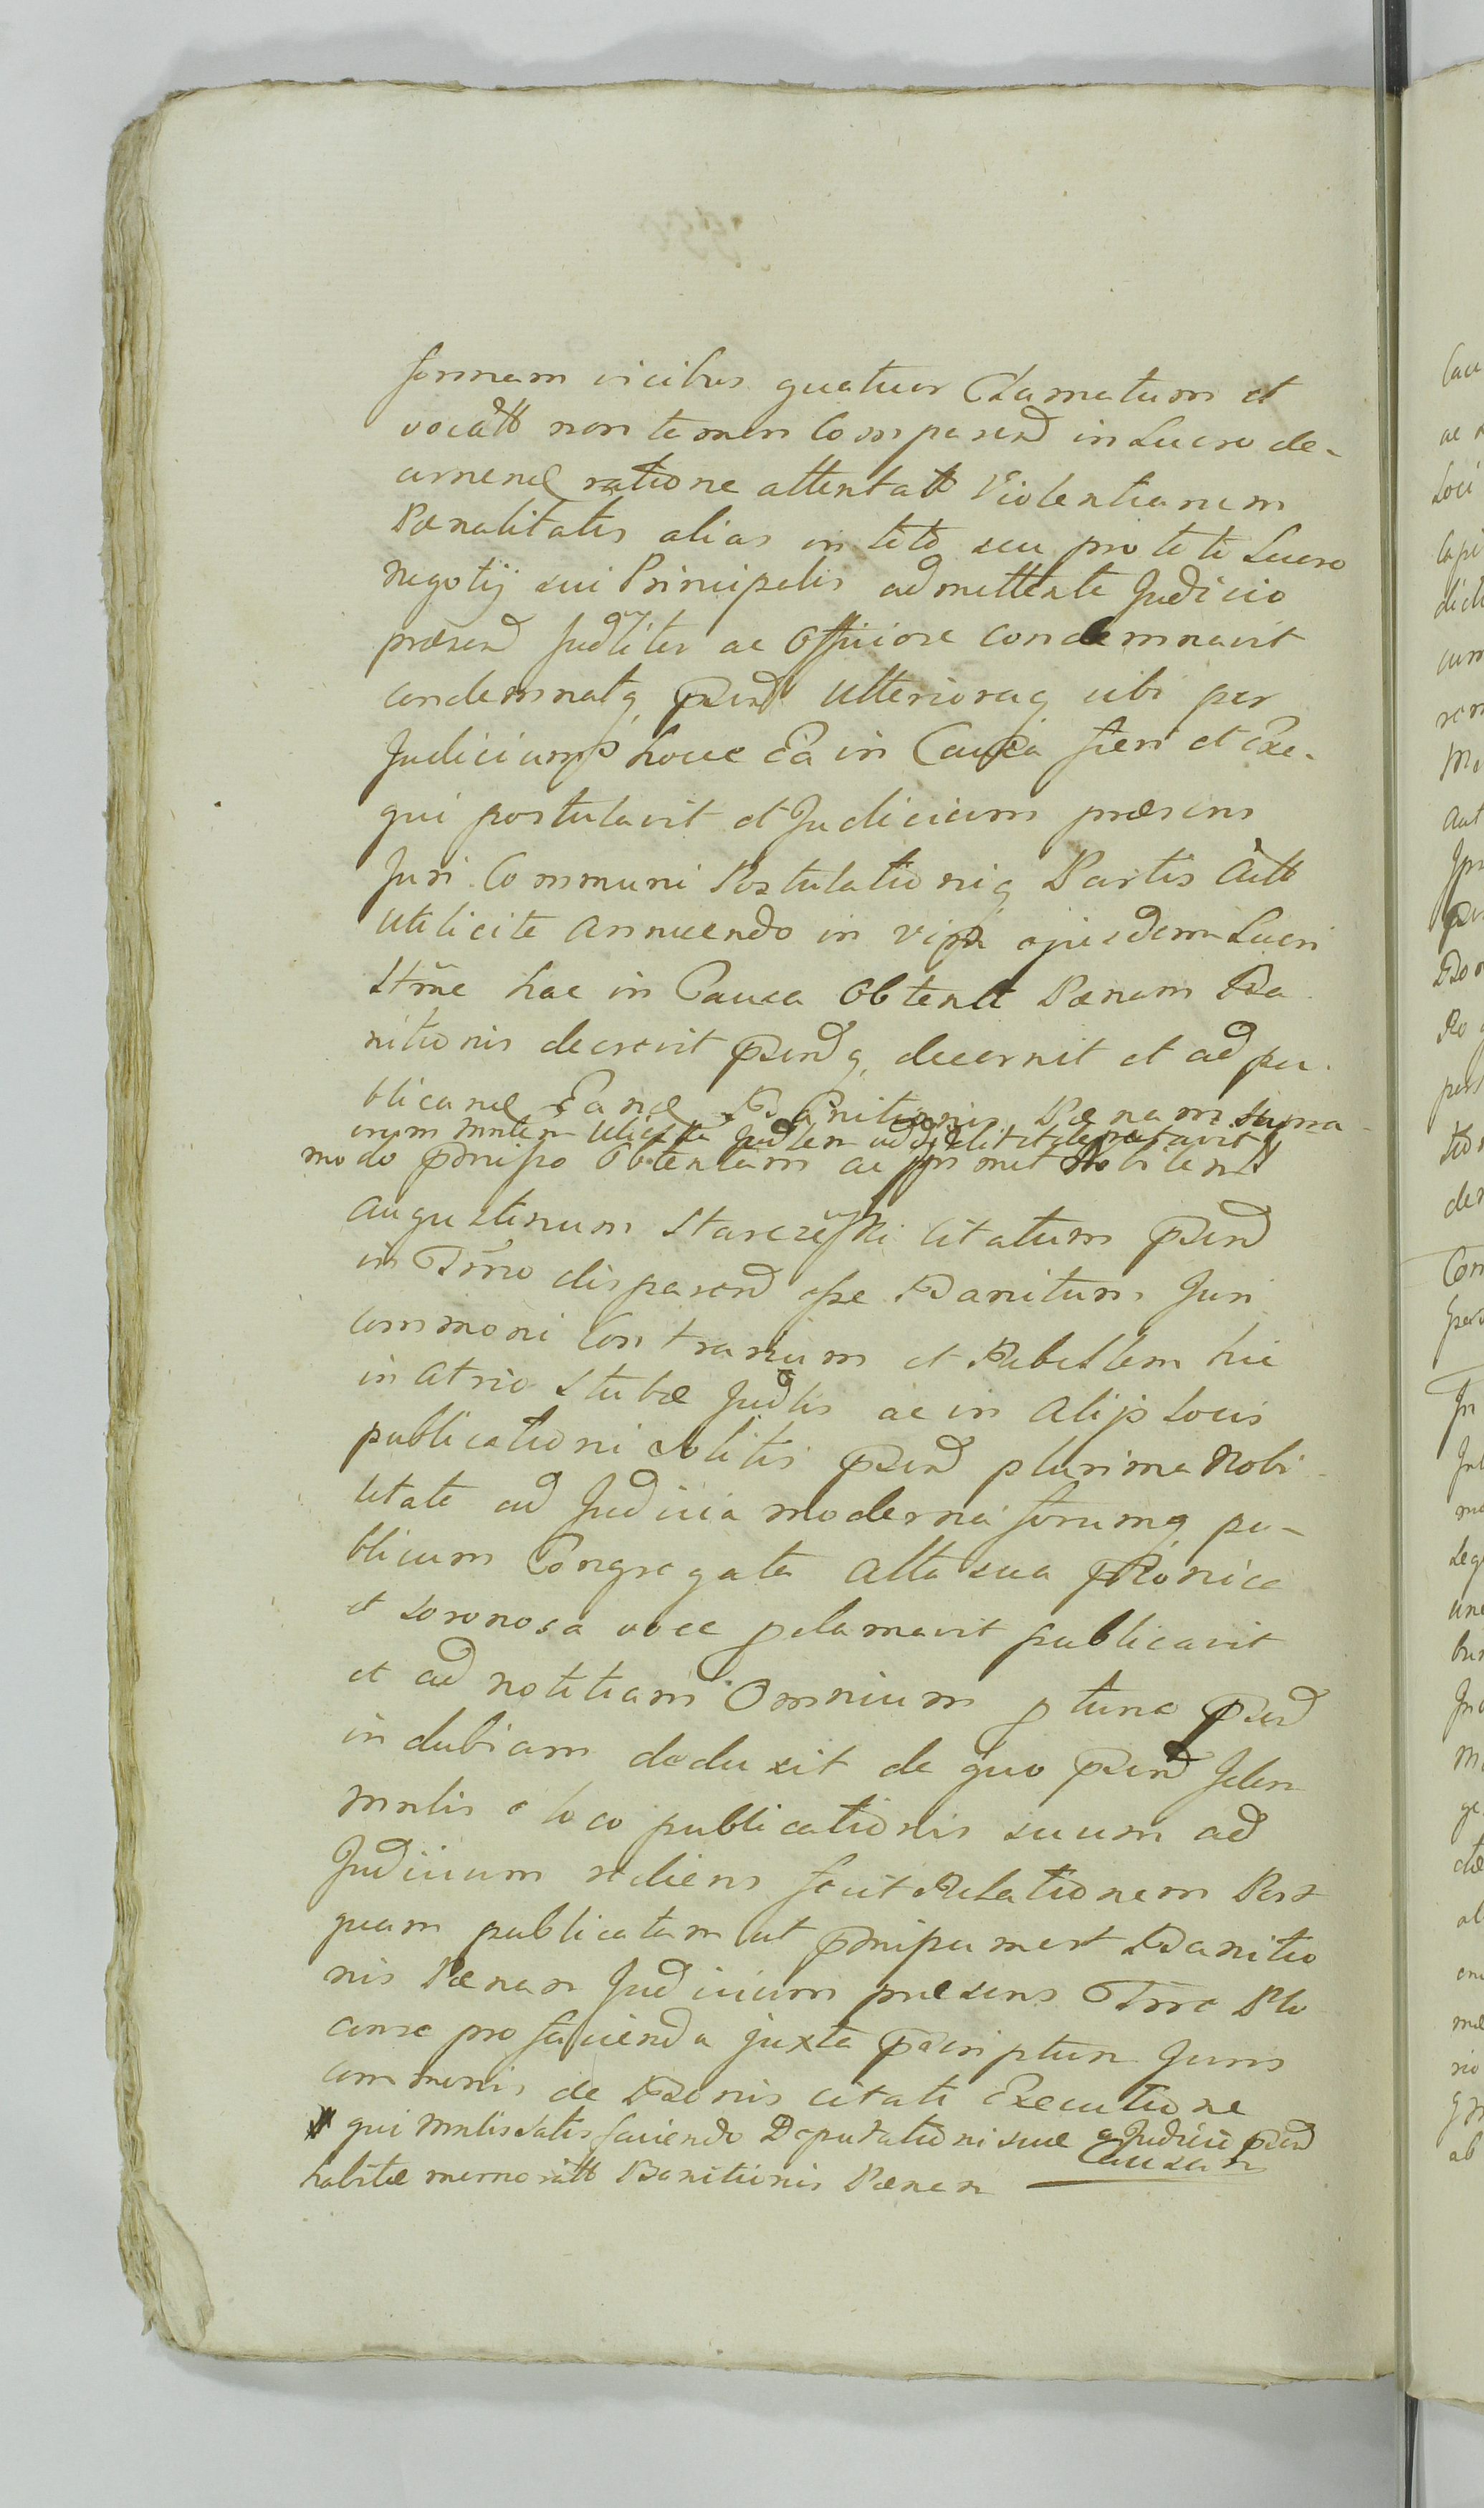 formam vicibus quatuor Clamatum et
vocatt non tamen Comparend in Lucro de-
cernend ratione attentatt Violentiarum
Pænalitatis alias in toto seu pro toto Lucro
negotij sui Principalis admittente Judicio
præsend Judtliter ac Officiose condemnavit
condemnatq præsend Ulterioraq sibi per
Judicium hocce Ea in Causa fieri et Exe-
qui postulavit et Judicium præsens
Juri Communi Postulationiq Partis Actt
Utilicite annuendo in vim ejusdem Lucri
hac in Causa Obtent Pænam Ba
nitionis decrevit præsendq decernit et ad pu-
blicand Eand Banitionis Pænam
modo præmisso Obtentam ac Nobilem
Augustinum Starczewski Citatum præsend
in Trmo disparend esse Banitum Juri
communi Contrarium et Rebellem hic
in atrio Stubæ Judtlis ac in alijs Locis
publicationi solitis præsend plurima Nobi-
litate ad Judicia moderna forumq pu-
blicum Congregata alta sua
et sonorosa voce pclamavit publicavit
et ad notitiam Omnium ptunc præsend
indubiam deduxit de quo præsend Idem
Mntlis e loco publicationis suum ad
Judicium rediens fecit Relationem Post
quam publicatam ut præmissum est Banitio
nis Pænam Judicium præsens Trræ Plo
censæ pro facienda juxta præscriptum Juris
communis de Bonis citati Executione
Causam
qui Mntlis satisfaciendo Deputationi suæ a Judicio præsend
habitæ memoratt Banitionis Pænam